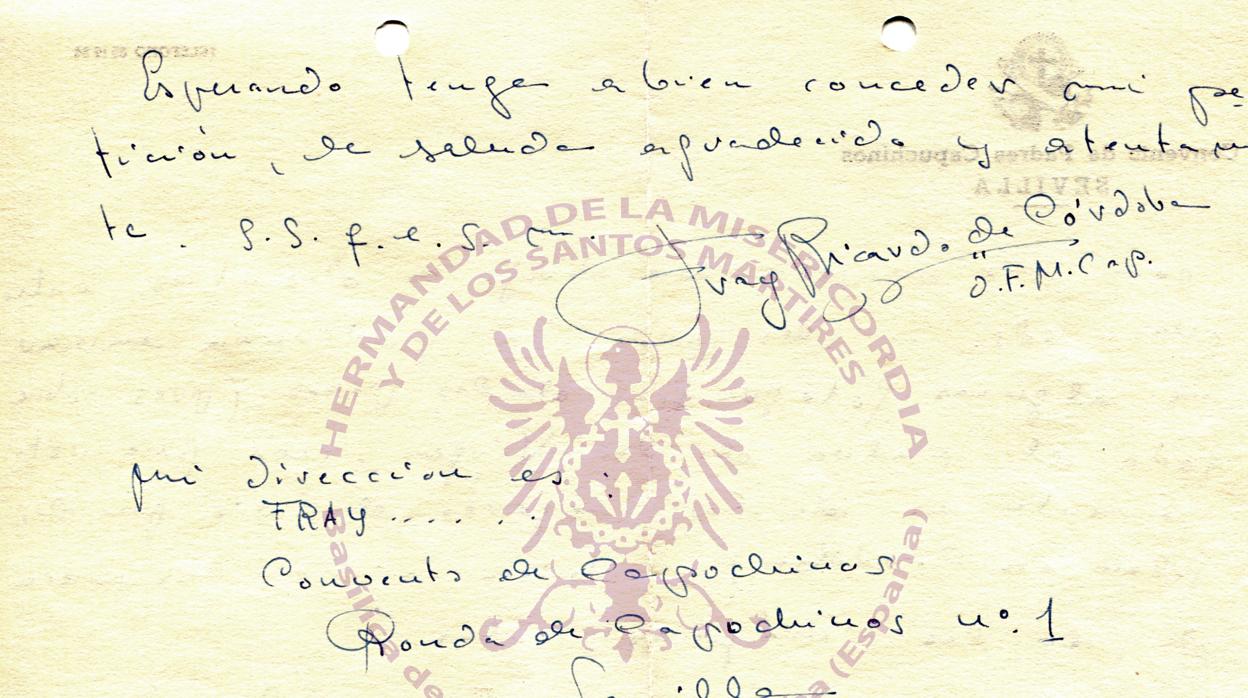 Esperando tenga a bien conceder mi pe-
tición, le saluda agradecido y atentamen
te. S.S. q.e.s.m.
Fray Ricardo de Córdoba
O.F.M.Cap.
mi dirección es:
FRAY .......
Convento de Capuchinos
Ronda de Capuchinos nº. 1
Sevilla
HERMANDAD DE LA MISERICORDIA
Y DE LOS SANTOS MÁRTIRES
Basílica de
(España)
Convento de Padres Capuchinos
SEVILLA